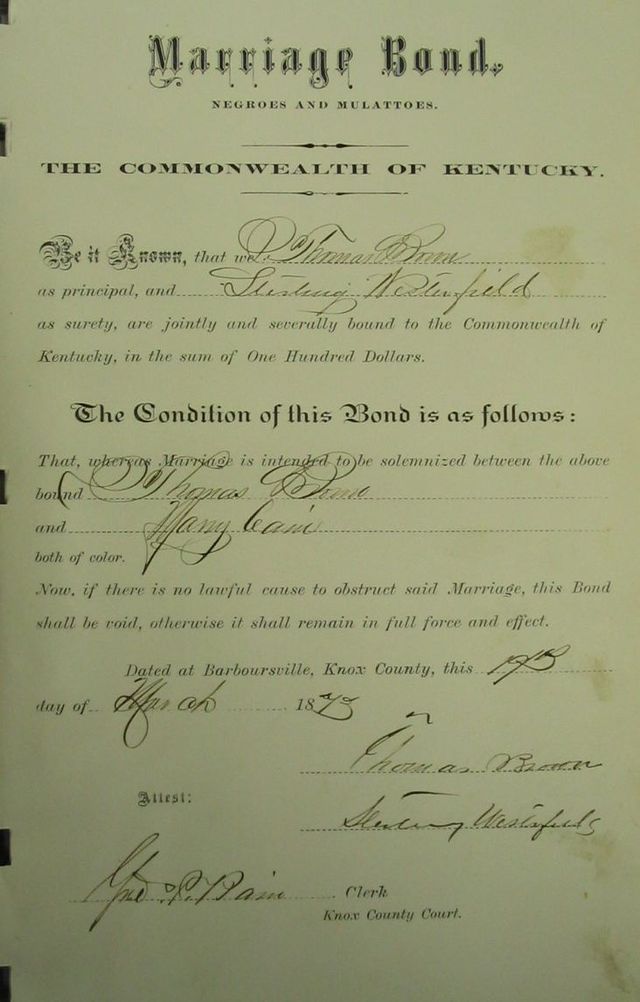 Marriage Bond,
NEGROES AND MULATTOES.
THE COMMONWEALTH OF KENTUCKY.
Be it Known, that we Thomas Brown
as principal, and Sterling Westerfield
as surety, are jointly and severally bound to the Commonwealth of
Kentucky, in the sum of One Hundred Dollars.
The Condition of this Bond is as follows:
That, whereas Marriage is intended to be solemnized between the above
bound Thomas Brown
and Mary Cain
both of color.
Now, if there is no lawful cause to obstruct said Marriage, this Bond
shall be void, otherwise it shall remain in full force and effect.
Dated at Barboursville, Knox County, this
day of March 1873
Thomas Brown
Attest:
Sterling Westerfield
Clerk
Knox County Court.